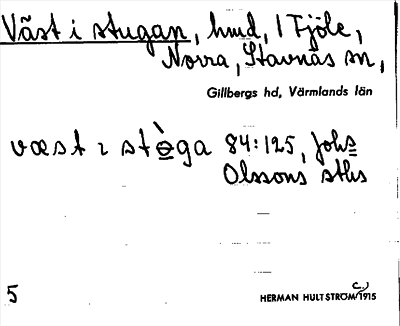 Väst i stugan, hmd, 1 Tjöle,
Norra, Stavnäs sn,
Gillbergs hd, Värmlands län
væst ɩ stɵ̀ga 84:125, Johs
Olssons sths
5
HERMAN HULTSTRÖM (C.) 1915